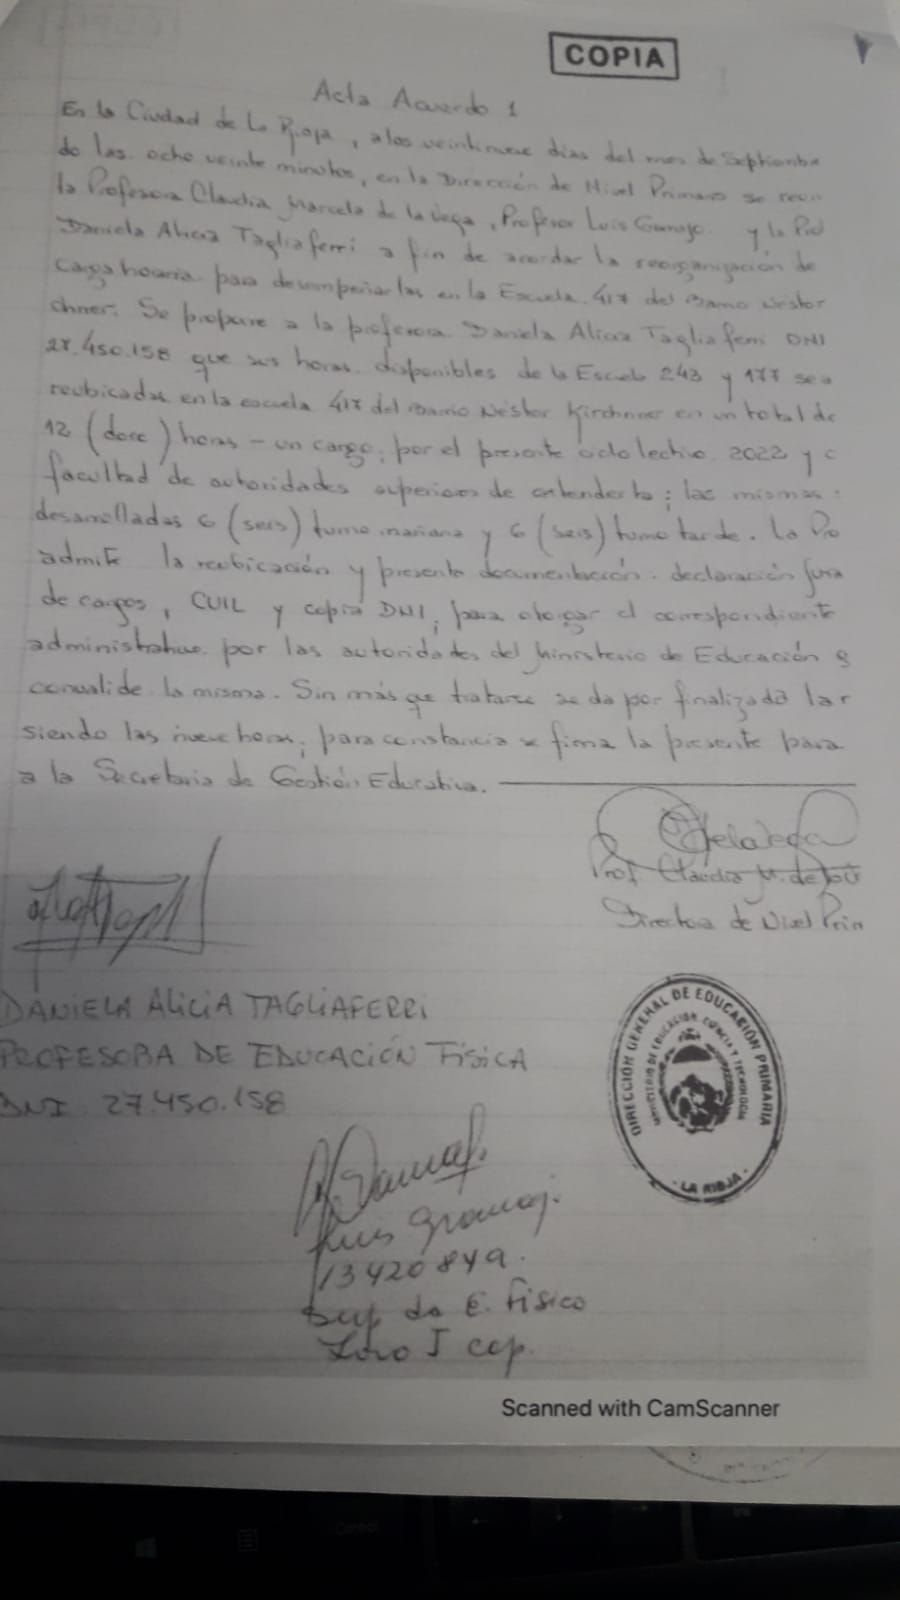 COPIA
Acta Acuerdo 1
En la Ciudad de La Rioja, a los veintinueve días del mes de Septiembre
do las ocho veinte minutos, en la Dirección de Nivel Primario se reun
la Profesora Claudia Marcela de la Vega, Profesor Luis y la Prof
Daniela Alicia Tagliaferri a fin de acordar la reorganización de
carga horaria para desempeñarlas en la Escuela 417 del Barrio Néstor
chner. Se propone a la profesora Daniela Alicia Tagliaferri DNI
27.450.158 que sus horas disponibles de la Escuela 243 y 177 sea
reubicadas en la escuela 417 del Barrio Néstor Kirchner en un total de
12 (doce) horas - un cargo, por el presente ciclo lectivo 2022 y a
facultad de autoridades superiores de entenderlo; las mismas
desarrolladas 6 (seis) turno mañana y 6 (seis) turno tarde. La Pro
admite la reubicación y presenta documentación: declaración jura
de cargos, CUIL y copia DNI, para otorgar el correspondiente
administrativo por las autoridades del Ministerio de Educación q
convalide la misma. Sin más que tratarse se da por finalizada la r
siendo las nueve horas, para constancia se firma la presente para
a la Secretaria de Gestión Educativa.
Prof. Claudia M. de la
Directora de Nivel Prim
DANIELA ALICIA TAGLIAFERRI
PROFESORA DE EDUCACIÓN FÍSICA
DNI 27.450.158
DIRECCIÓN GENERAL DE EDUCACIÓN PRIMARIA
MINISTERIO DE EDUCACIÓN, CIENCIA Y TECNOLOGIA
- LA RIOJA -
Luis
13420849.
Sup de E. Físico
Zona I cap.
Scanned with CamScanner